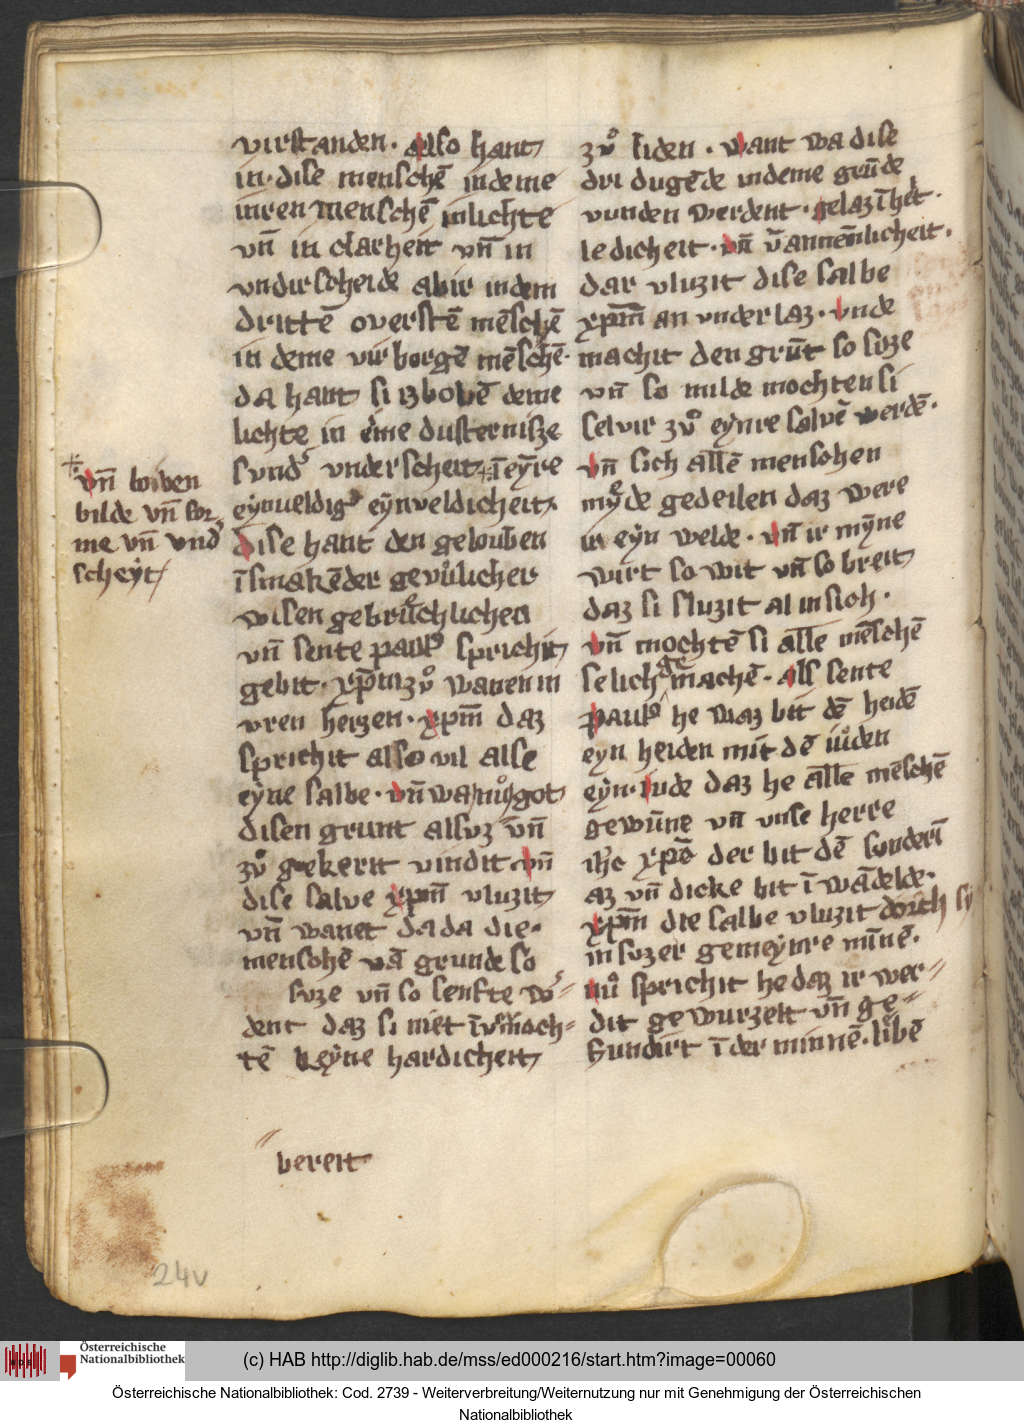 virstanden. also hant
in. dise menschē in deme
inren menschē inlichte
vn̄ in clarheit vn̄ in
vndirscheide abir indem
drittē overstē mēschē
in deme virborgē mēschē.
da hant si iz bovē deme
lichte in eime dusternisze
sundˀ vnderscheit ī eȳre
eynueldigˀ eȳnveldicheit.
dise hant den gelouben
ī smakēder gevůlicher
wisen gebrůchlichen
vn̄ sente paulꝰ sprichit
gebit. xp̄m zů wanen in
vren herzen. xp̄m daz
sprichit also vil alse
eyne salbe. vn̄ wa nů got
disen grunt alsuz vn̄
zů gekerit vindit vn̄
dise salve xp̄m vluzit
vn̄ wanet da da die
menschē vā grunde so
suze vn̄ so senfte wˀ
dent daz si niet īv̊moch
tē keyne hardicheit
bereit
vn̄ boiven
bilde vn̄ for
me vn̄ vndˀ
scheyt
zů liden. want wa dise
dri dugēde indeme grūde
vunden werdent. gelazīheit.
ledicheit. vn̄ v̄annēlicheit.
dar vluzit dise salbe
xp̄m an vnderlaz. vnde
machit den grūt so suze
vn̄ so milde mochten si
selvir zů eynre salvē werdē.
vn̄ sich allē menschen
mẙde gedeilen daz were
ir eyn welde. vn̄ ir mȳne
wirt so wit vn̄ so breit
daz si sluzit al in sich.
vn̄ mochtē si alle mēschē
selich machē. als sente
paulꝰ he waz bit dē heidē
eyn heiden mit dē iůden
eyn. iude daz he alle mēschē
gewūne vn̄ vnse herre
ih̄c xp̄c der bit dē sunderī
az vn̄ dicke bit ī wādelde.
xp̄m die salbe vluzit dorch sy
in suzer gemeynre mīnē.
nů sprichit he daz ir wer
dit gewurzelt vn̄ ge
fundirt ī der minnē. libē
24v
Österreichische
Nationalbibliothek
(c) HAB http://diglib.hab.de/mss/ed000216/start.htm?image=00060
Österreichische Nationalbibliothek: Cod. 2739 - Weiterverbreitung/Weiternutzung nur mit Genehmigung der Österreichischen
Nationalbibliothek